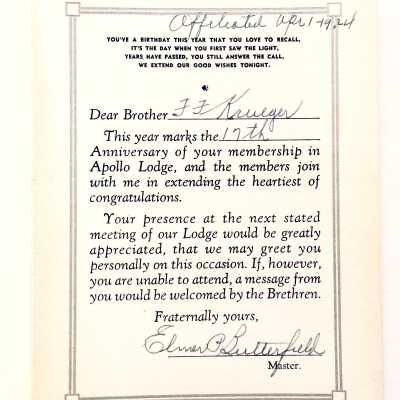 Affiliated Apr 1-1924
YOU'VE A BIRTHDAY THIS YEAR THAT YOU LOVE TO RECALL,
IT'S THE DAY WHEN YOU FIRST SAW THE LIGHT,
YEARS HAVE PASSED, YOU STILL ANSWER THE CALL,
WE EXTEND OUR GOOD WISHES TONIGHT.
Dear Brother F F Krueger
This year marks the 17th
Anniversary of your membership in
Apollo Lodge, and the members join
with me in extending the heartiest of
congratulations.
Your presence at the next stated
meeting of our Lodge would be greatly
appreciated, that we may greet you
personally on this occasion. If, however,
you are unable to attend, a message from
you would be welcomed by the Brethren.
Fraternally yours,
Elmer P. Butterfield
Master.